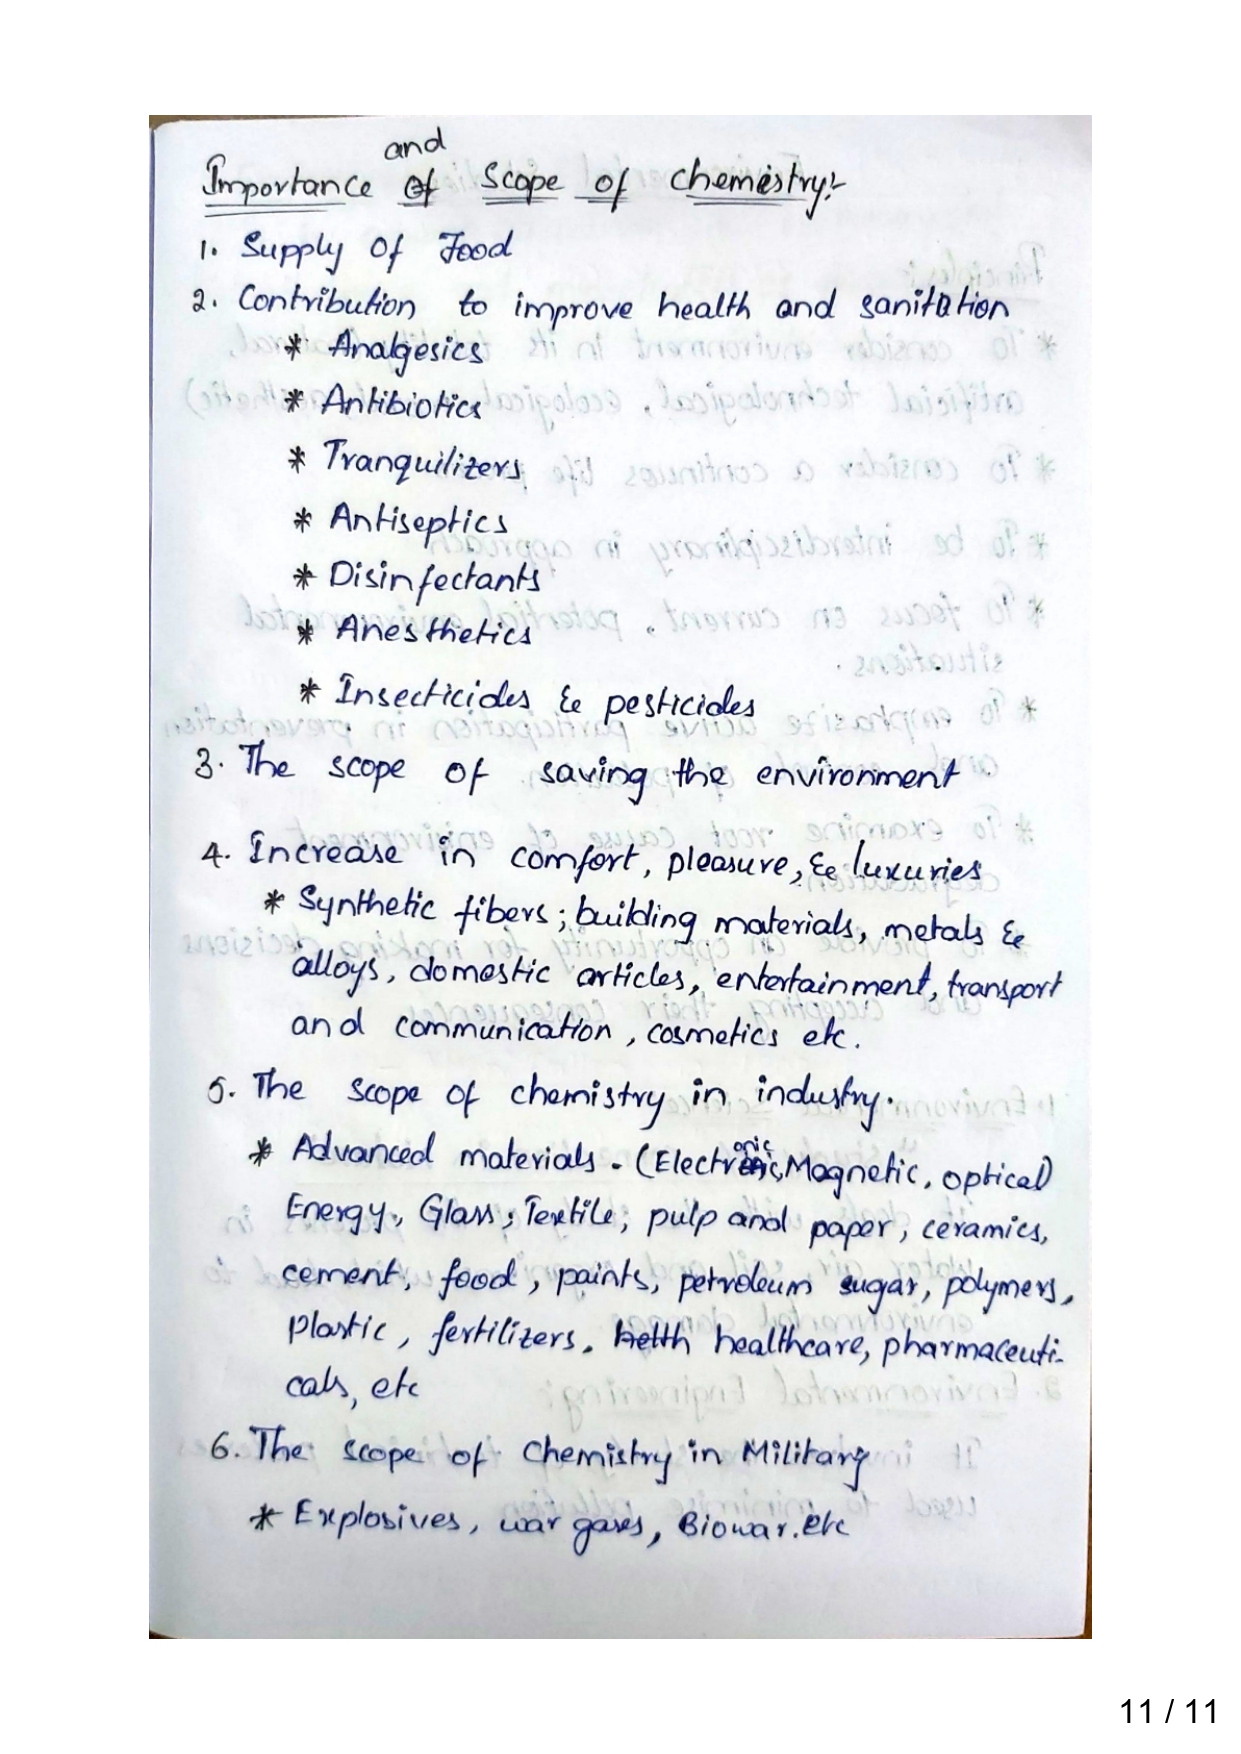 Importance and Scope of chemistry:-
1. Supply of Food
2. Contribution to improve health and sanitation
* Analgesics
* Antibiotics
* Tranquilizers
* Antiseptics
* Disinfectants
* Anesthetics
* Insecticides & pesticides
3. The scope of saving the environment
4. Increase in comfort, pleasure, & luxuries
* Synthetic fibers; building materials, metals &
alloys, domestic articles, entertainment, transport
and communication, cosmetics etc.
5. The scope of chemistry in industry.
* Advanced materials. (Electronic, Magnetic, optical)
Energy, Glass, Textile, pulp and paper, ceramics,
cement, food, paints, petroleum sugar, polymers,
Plastic, fertilizers, healthcare, pharmaceuti-
cals, etc
6. The scope of Chemistry in Military
* Explosives, war gases, Biowar.etc
11 / 11